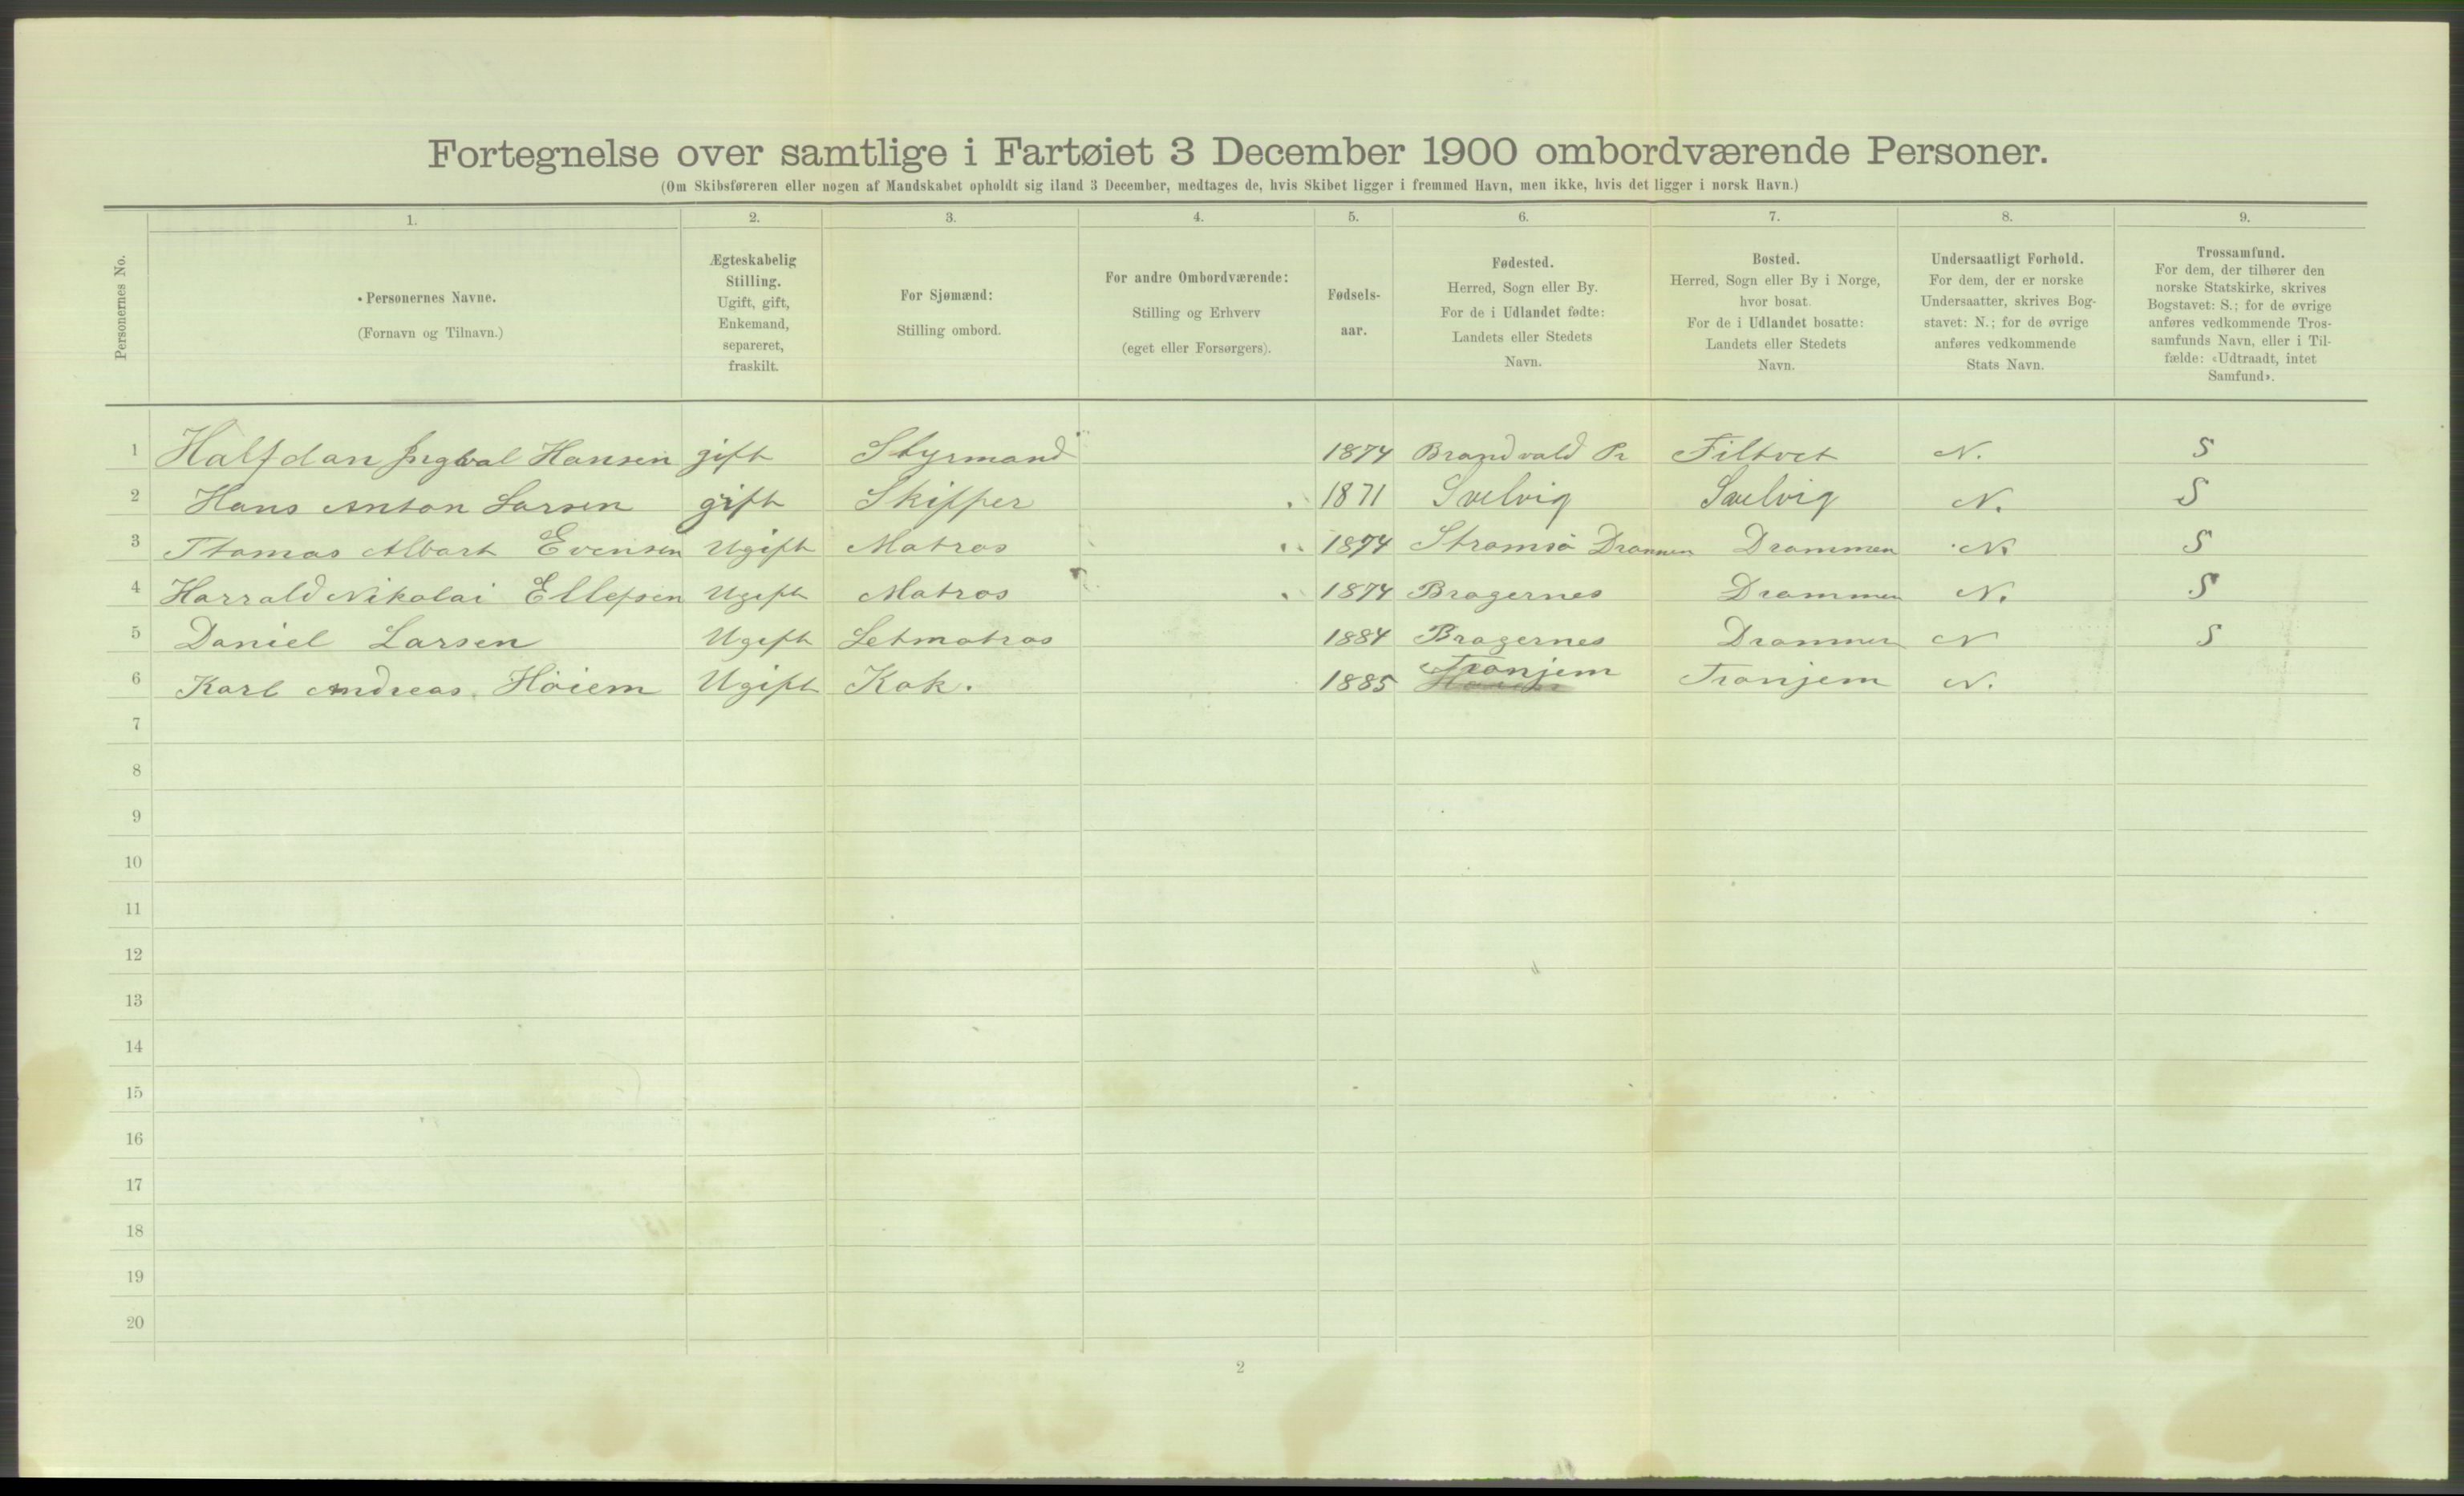 Fortegnelse over samtlige i Fartøiet 3 December 1900 ombordværende Personer.
(Om Skibsføreren eller nogen af Mandskabet opholdt sig iland 3 December, medtages de, hvis Skibet ligger i fremmed Havn, men ikke, hvis det ligger i norsk Havn.)
Personernes No.
1. 2. 3. 4. 5. 6. 7. 8. 9.
Personernes Navne.
(Fornavn og Tilnavn.)
Ægteskabelig
Stilling.
Ugift, gift,
Enkemand,
separeret,
fraskilt.
For Sjømænd:
Stilling ombord.
For andre Ombordværende:
Stilling og Erhverv
(eget eller Forsørgers).
Fødsels-
aar.
Fødested.
Herred, Sogn eller By.
For de i Udlandet fødte:
Landets eller Stedets
Navn.
Bosted.
Herred, Sogn eller By i Norge,
hvor bosat.
For de i Udlandet bosatte:
Landets eller Stedets
Navn.
Undersaatligt Forhold.
For dem, der er norske
Undersaatter, skrives Bog-
stavet: N.; for de øvrige
anføres vedkommende
Stats Navn.
Trossamfund.
For dem, der tilhører den
norske Statskirke, skrives
Bogstavet: S.; for de øvrige
anføres vedkommende Tros-
samfunds Navn, eller i Til-
fælde: «Udtraadt, intet
Samfund».
1 Halfdan Hansen gift Styrmand 1874 Brandvald Filtvet N. S
2 Hans Anton Larsen gift Skipper 1871 Svelvig Svelvig N. S
3 Thomas Albart Evensen Ugift Matros 1874 Stromsø Drammen Drammen N. S
4 Harrald Nikolai Ellefsen Ugift Matros 1874 Bragernes Drammen N. S
5 Daniel Larsen Ugift Letmatros 1884 Bragernes Drammen N S
6 Karl Andreas Høiem Ugift Kok. 1885 Tronjem Tronjem N.
7
8
9
10
11
12
13
14
15
16
17
18
19
20
2